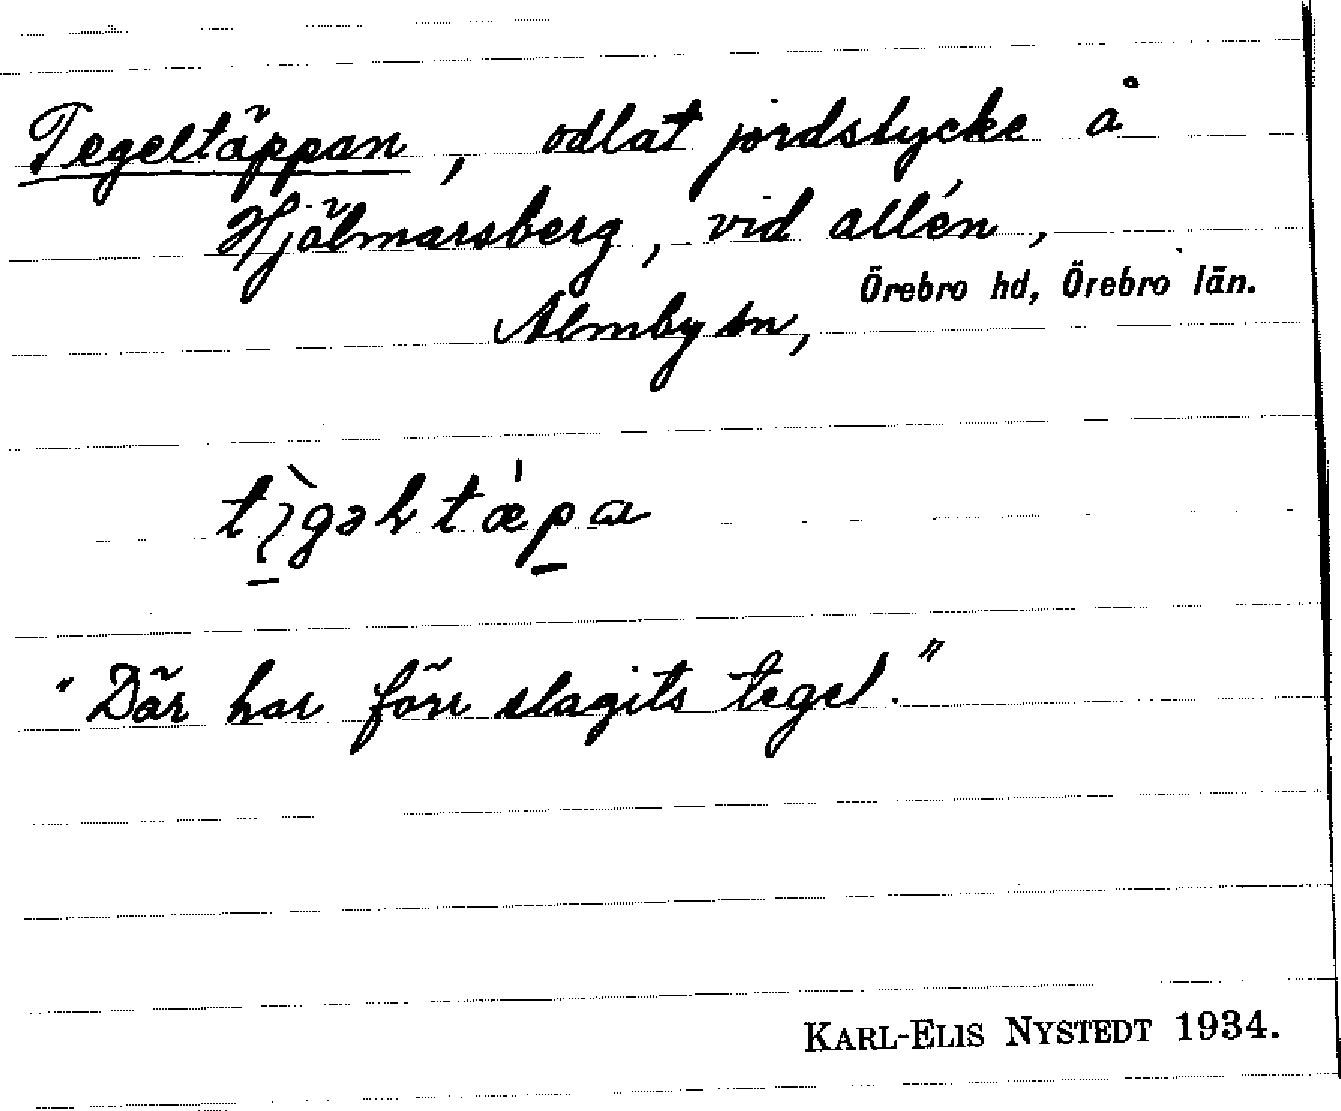 Tegeltäppan, odlat jordstycke å
Hjälmarsberg, vid allén,
Örebro hd, Örebro län.
Almby sn,
"Där har förr slagits tegel."
KARL-ELIS NYSTEDT 1934.